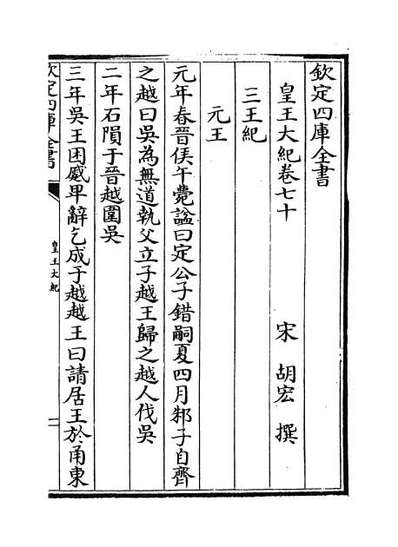 欽定四庫全書
皇王大紀卷七十
宋 胡宏 撰
三王紀
元王
元年春晉侯午薨諡曰定公子錯嗣夏四月邾子自齊
之越曰吳為無道執父立子越王歸之越人伐吳
二年石隕于晉越圍吳
三年吳王困蹙卑辭乞成于越越王曰請居王於甬東
欽定四庫全書
皇王大紀
一